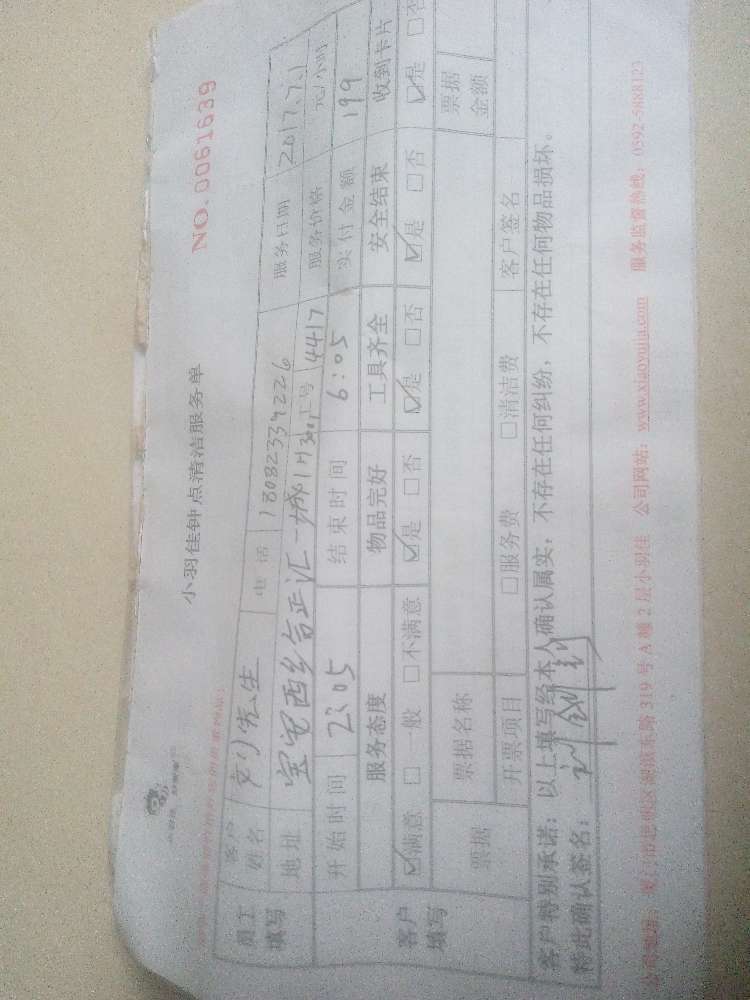 小羽佳钟点清洁服务单
NO. 0061639
员工填写 客户姓名 刘先生 电话 18082339226 服务日期 2017.7.1
地址 宝安西乡合正汇一城1月3001 工号 4417 服务价格 元/小时
开始时间 2:05 结束时间 6:05 实付金额 199
客户填写 服务态度 物品完好 工具齐全 安全结束 收到卡片
☑满意 □一般 □不满意 ☑是 □否 ☑是 □否 ☑是 □否 ☑是 □否
票据 票据名称 票据金额
开票项目 □服务费 □清洁费 客户签名
客户特别承诺：以上填写经本人确认属实，不存在任何纠纷，不存在任何物品损坏。
特此确认签名：
公司地址：厦门市思明区湖滨东路 319 号 A 幢 2 层小羽佳 公司网站：www.xiaoyujia.com 服务监督热线：0592-5888123